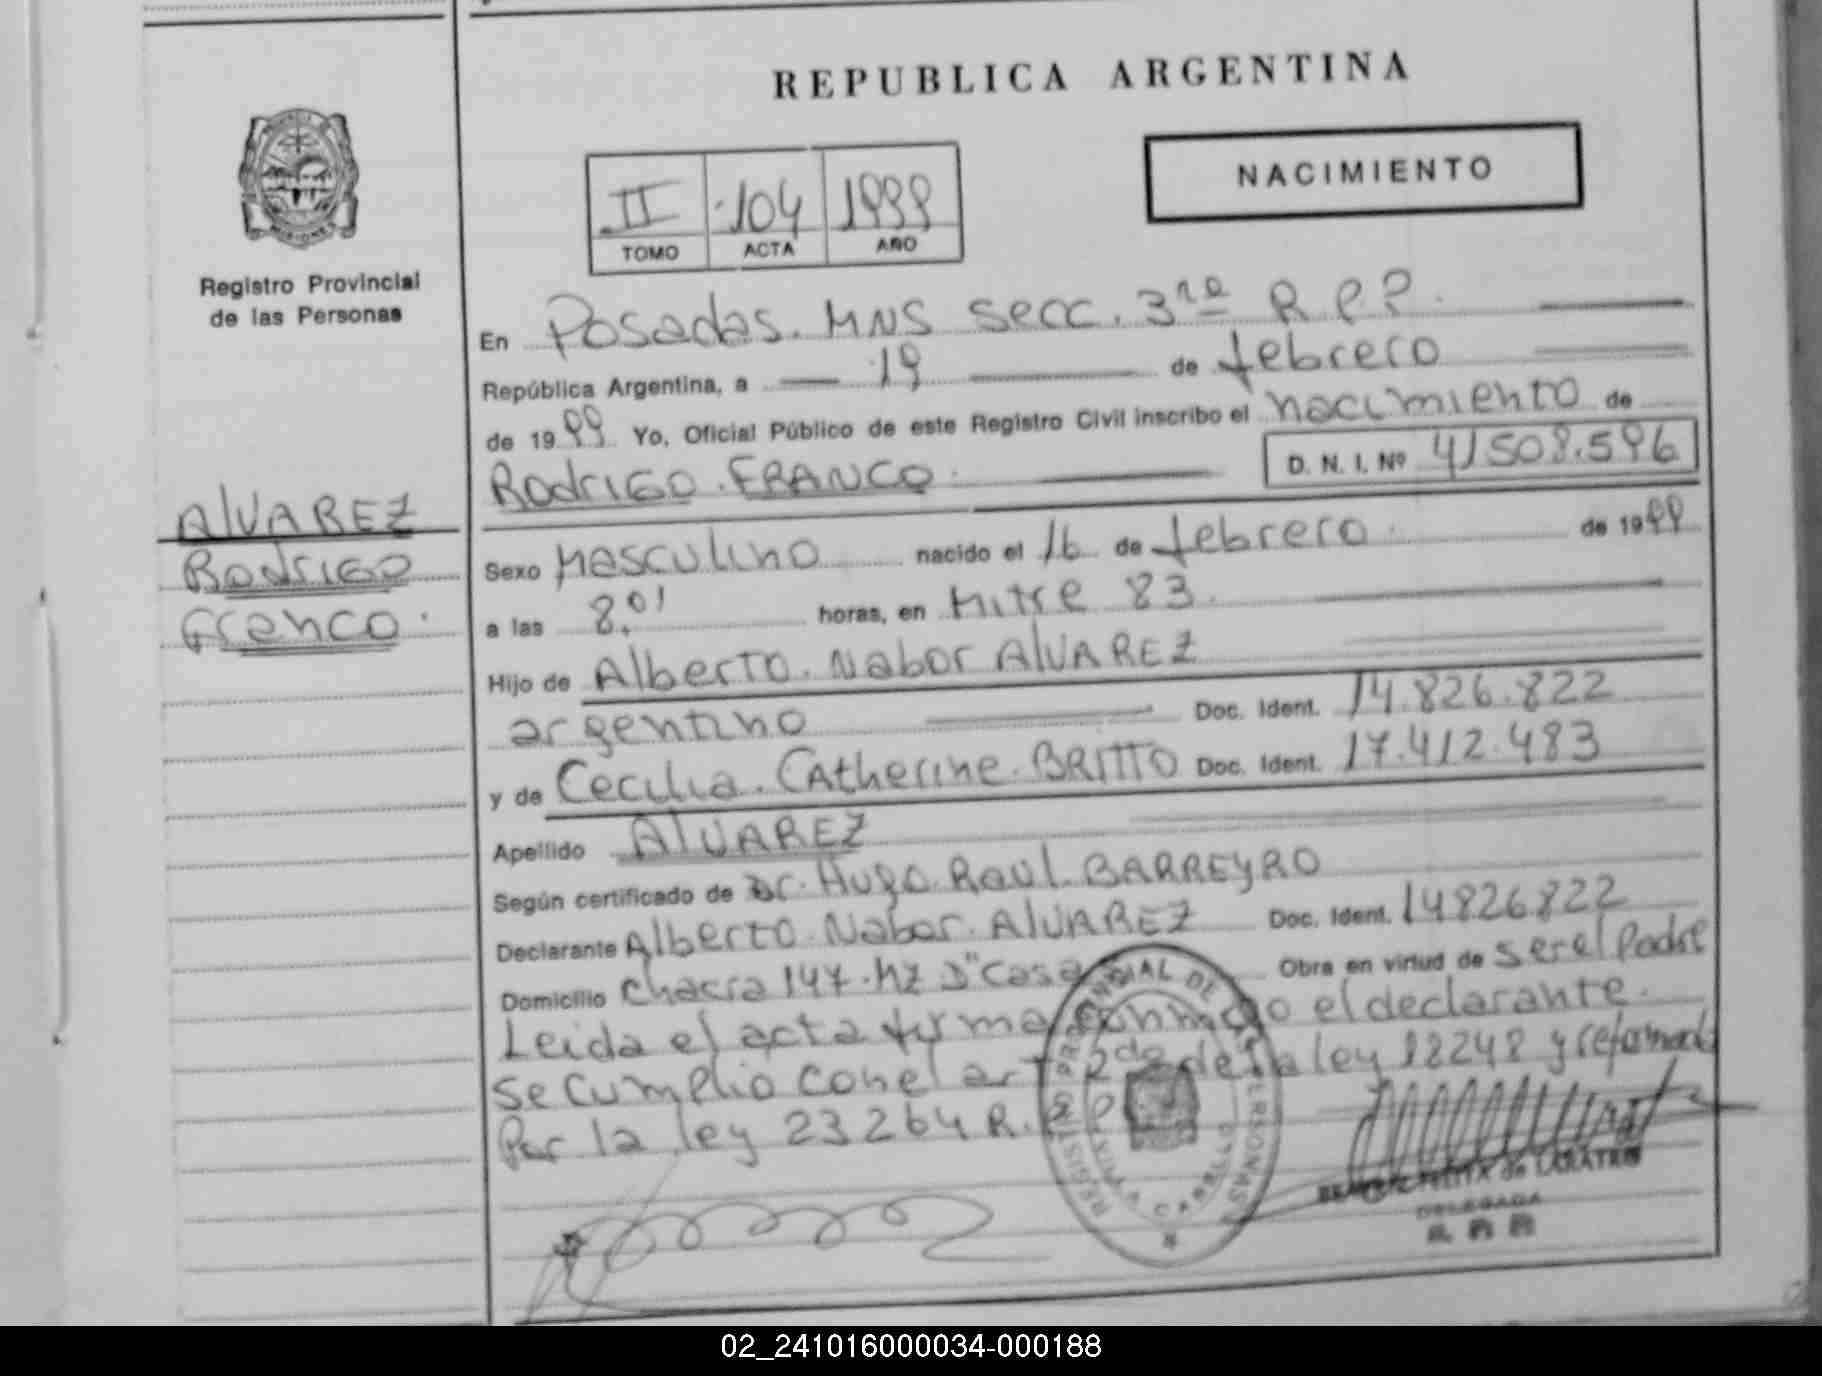 REPUBLICA ARGENTINA
NACIMIENTO
II 104 1999
TOMO ACTA AÑO
Registro Provincial
de las Personas
En Posadas. MNS secc. 3ra R.P.P.
República Argentina, a 19 de febrero
de 1999 Yo, Oficial Público de este Registro Civil inscribo el nacimiento de
Rodrigo FRANCO. D. N. I. Nº 41508.596
ALVAREZ
Rodrigo
Franco.
Sexo Masculino nacido el 16 de febrero. de 1999
a las 8,01 horas, en Mitre 83.
Hijo de Alberto. Nabor ALVAREZ
argentino Doc. Ident. 14.826.822
y de Cecilia. CAtherine. BRITTO Doc. Ident. 17.412.483
Apellido ALVAREZ
Según certificado de Dr. Hugo. Raúl. BARREYRO
Declarante Alberto. Nabor. ALVAREZ Doc. Ident. 14826822
Domicilio Chacra 147. Mz D" Casa Obra en virtud de ser el Padre
Leida el acta firma conmigo el declarante.
Se cumplio con el art 2do de la ley 18248 y reformado
Por la ley 23264 R.P.P.
DELEGADA
02_241016000034-000188